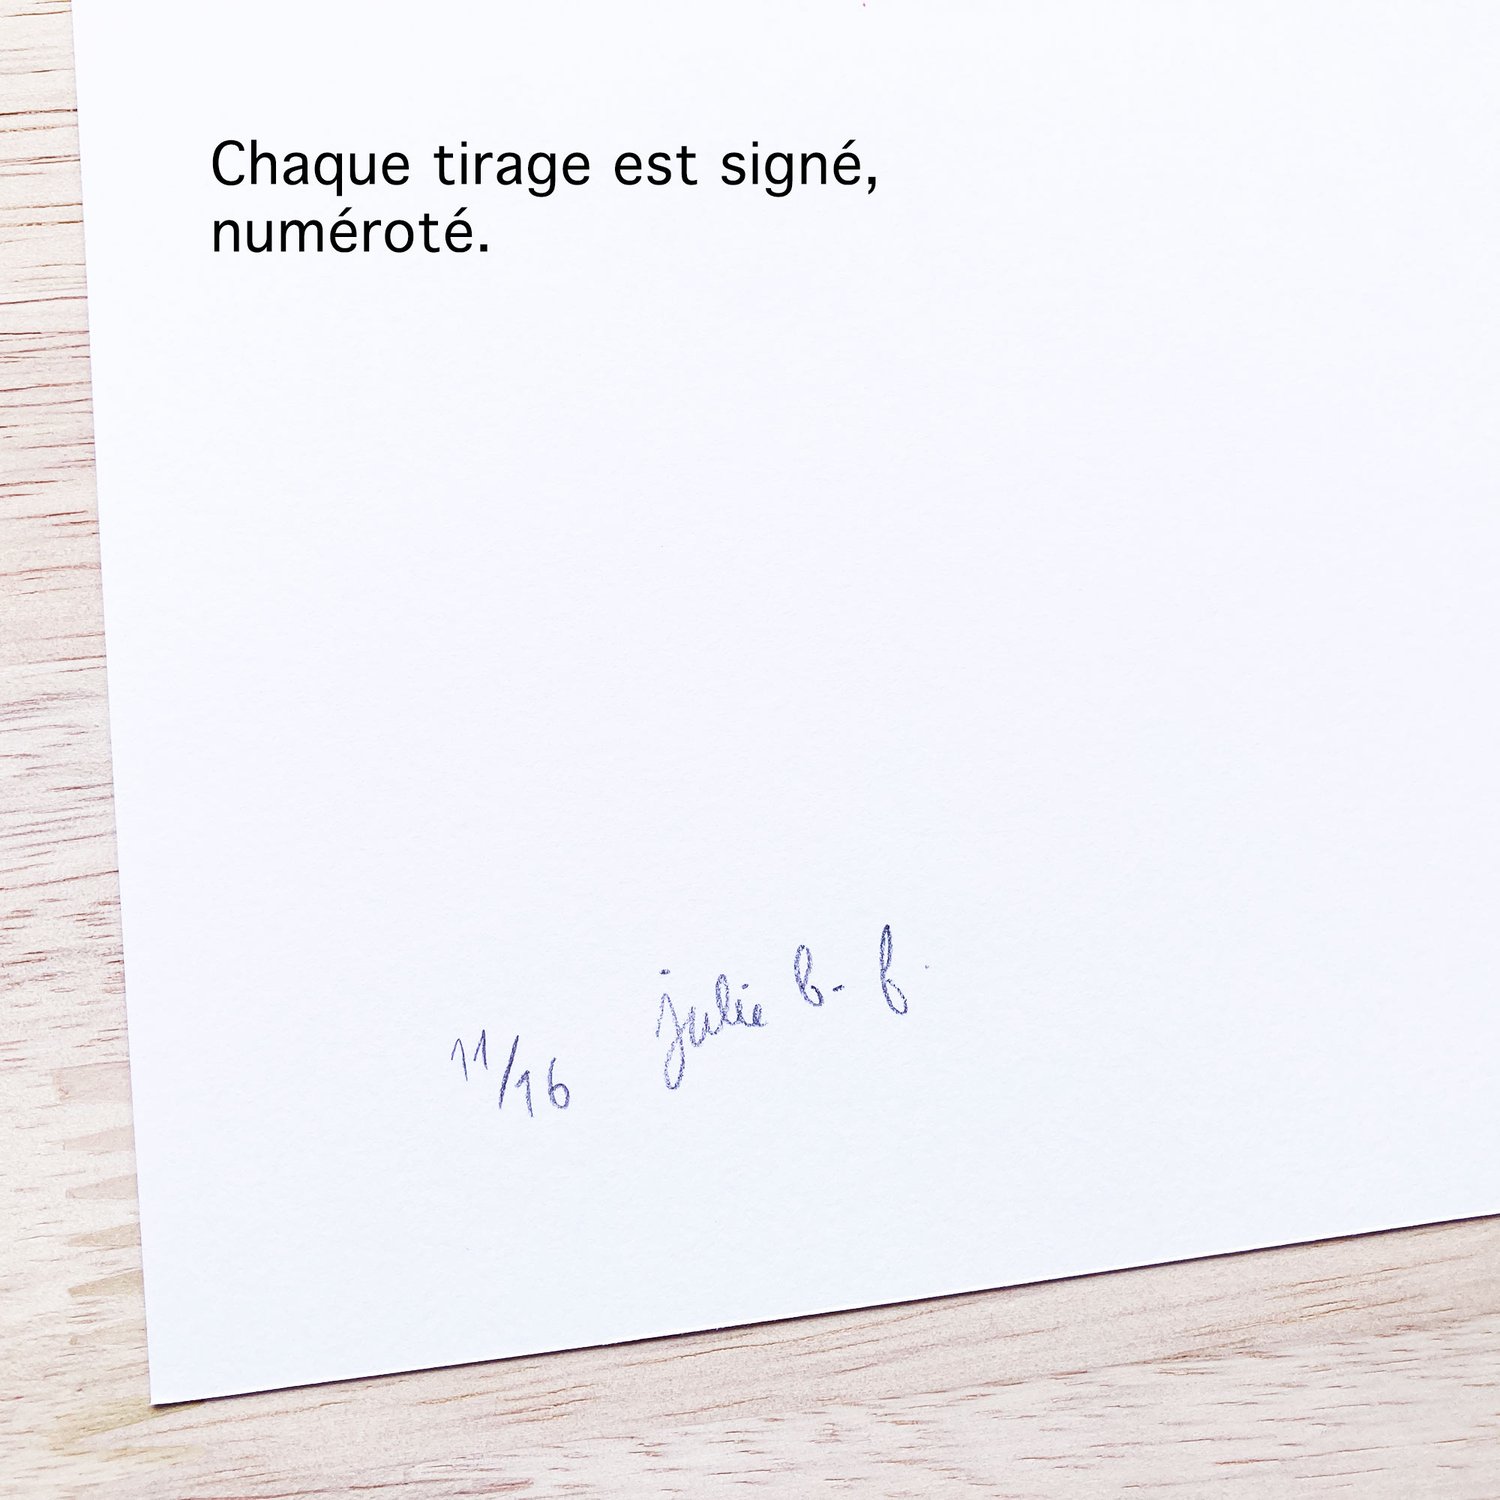 Chaque tirage est signé,
numéroté.
11/16 julie b. b.